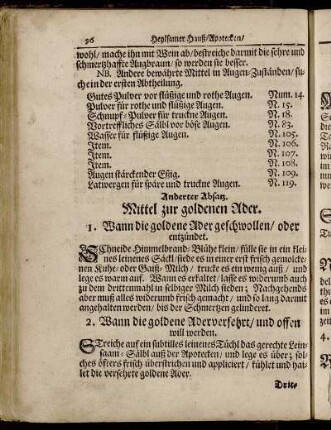 96 Heylsamer Hauß-Apotecken/
wohl/ mache ihn mit Wein ab/ bestreiche darmit die sehre und
schmertzhaffte Augbraun/ so werden sie besser.
NB. Andere bewährte Mittel in Augen-Zuständen/ su-
che in der ersten Abtheilung.
Gutes Pulver vor flüßige und rothe Augen. Num. 14.
Pulver für rothe und flüßige Augen. N. 15.
Schnupf-Pulver für truckne Augen. N. 18.
Vortreffliches Sälbl vor böse Augen. N. 83.
Wasser für flüßige Augen. N. 105.
Item. N. 106.
Item. N. 107.
Item. N. 108.
Augen stärckender Eßig. N. 109.
Latwergen für späre und truckne Augen. N. 119.
Anderter Absatz.
Mittel zur goldenen Ader.
1. Wann die goldene Ader geschwollen/ oder
entzündet.
Schneide Himmelbrand-Blühe klein/ fülle sie in ein klei-
nes leinenes Säckl/ siede es in einer erst frisch gemolcke-
nen Kuhe- oder Gaiß-Milch/ trucke es ein wenig auß/ und
lege es warm auf. Wann es erkaltet/ lasse es widerumb auch
zu dem drittenmahl in selbiger Milch sieden; Nachgehends
aber muß alles widerumb frisch gemacht/ und so lang darmit
angehalten werden/ biß der Schmertzen gelinderet.
2. Wann die goldene Ader versehrt/ und offen
will werden.
Streiche auf ein subtilles leinenes Tüchl das gerechte Lein-
saam-Sälbl auß der Apotecken/ und lege es über; sol-
ches öfters frisch überstrichen und appliciert/ kühlet und hai-
let die versehrte goldene Ader.
Drit-